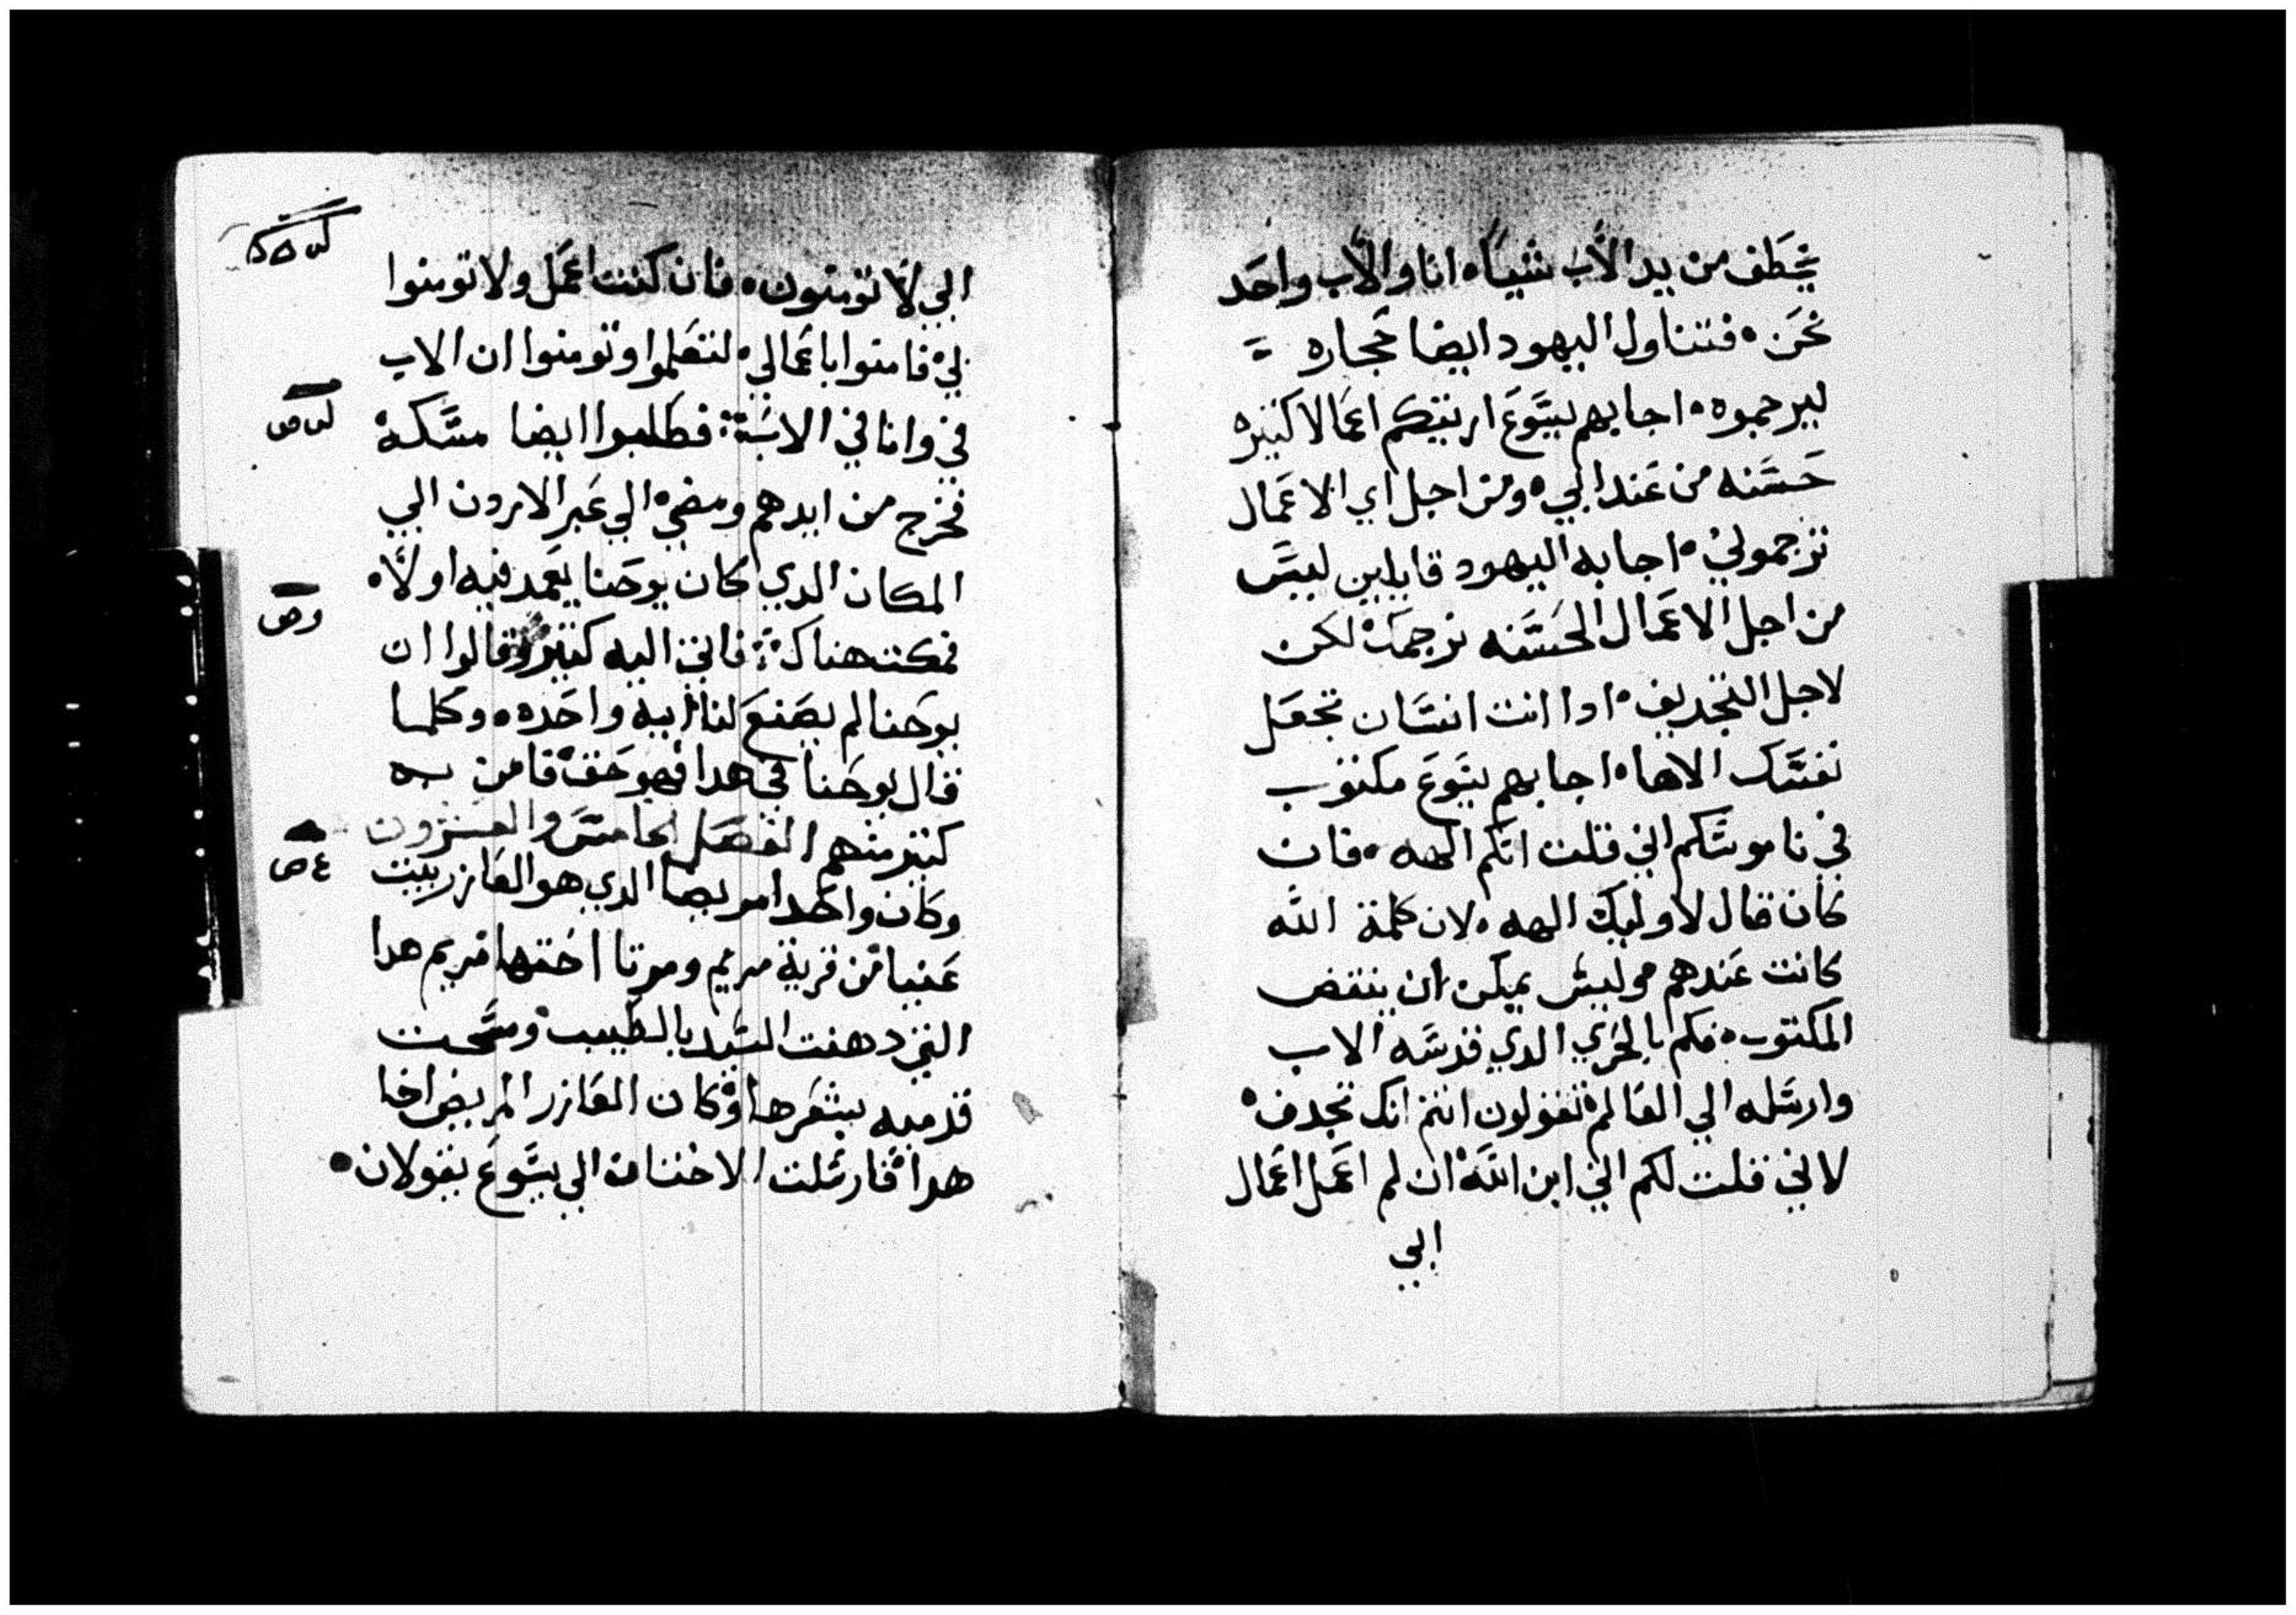 يخطف من يد الاب شياه انا والاب واحد
نحن ه فتناول اليهود ايضا حجاره =
ليرجموه ه اجابهم يسوع اريتكم اعمالا كثيره
حسنه من عند ابي ه ومن اجل اي الاعمال
ترجموني ه اجابه اليهود قايلين ليس
من اجل الاعمال الحسنه نرجمك لكن
لاجل التجديف ه ادا انت انسان تجعل
نفسك الاها ه اجابهم يسوع مكتوب
في ناموسكم اني قلت انكم الهه ه فان
كان قال لاوليك الهه ه لان كلمة الله
كانت عندهم وليس يمكن ان ينتقض
المكتوب ه فكم بالحري الدي قدسه الاب
وارسله الي العالم تقولون انتم انك تجدف ه
لاني قلت لكم اني ابن الله ان لم اعمل اعمال
ابي
ابي لا تومنون ه فان كنت اعمل ولا تومنوا
بي فامنوا باعمالي لتعلموا وتومنوا ان الاب
في وانا في الاب فطلبوا ايضا مسكه
فخرج من ايدهم ومضي الي عبر الاردن الي
المكان الدي كان يوحنا يعمد فيه اولا ه
فمكت هناك فاتي اليه كثير وقالوا ان
يوحنا لم يصنع لنا ايه واحده ه وكلما
قال يوحنا في هدا فهو حق فامن به
كثير منهم الفصل الخامس والعشرون
وكان واحدا مريضا الدي هو العازر ببيت
عنيا من قرية مريم ومرتا اختها مريم هدا
التي دهنت السيد بالطيب ومسحت
قدميه بشعرها وكان العازر المريض اخا
هدا فارسلت الاختان الي يسوع يقولان ه